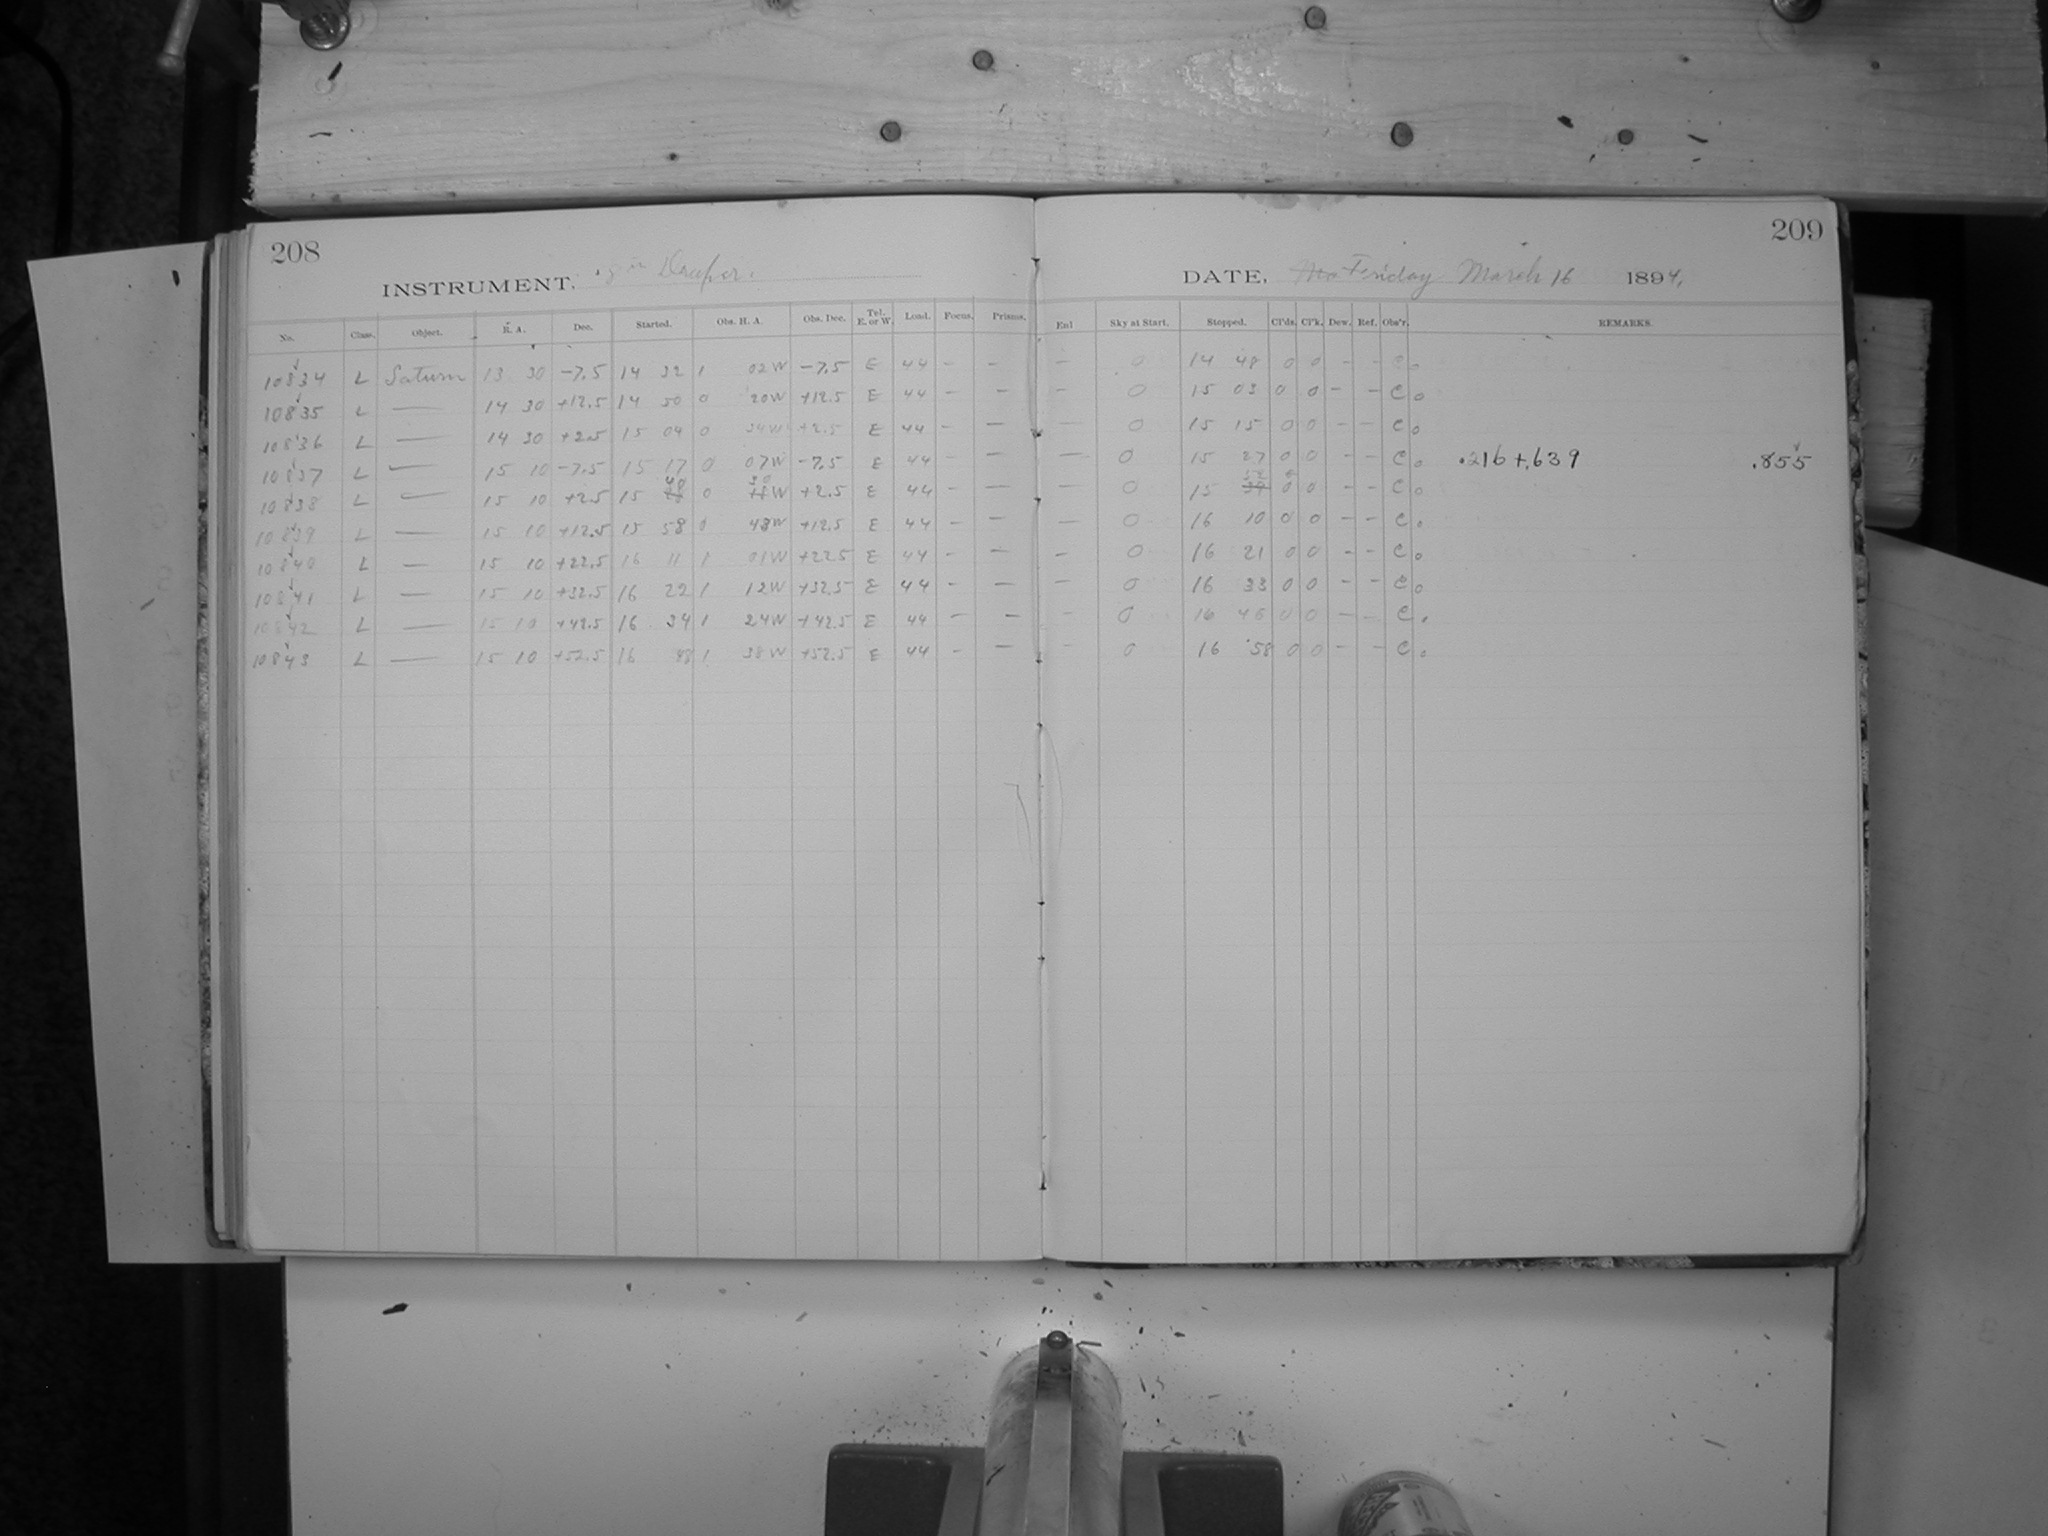 208
INSTRUMENT, 8 in Draper.
No. Class. Object. R. A. Dec. Started. Obs. H. A. Obs. Dec. Tel. E. or W. Load. Focus. Prisms.
10834 L Saturn 13 30 -7.5 14 32 1 02W -7.5 E 44 - -
10835 L — 14 30 +12.5 14 50 0 20W +12.5 E 44 - -
10836 L — 14 30 +2.5 15 04 0 34W +2.5 E 44 - -
10837 L — 15 10 -7.5 15 17 0 07W -7.5 E 44 - -
10838 L — 15 10 +2.5 15 40 0 30 W +2.5 E 44 - -
10839 L — 15 10 +12.5 15 58 0 48W +12.5 E 44 - -
10840 L — 15 10 +22.5 16 11 1 01W +22.5 E 44 - -
10841 L — 15 10 +32.5 16 22 1 12W +32.5 E 44 - -
10842 L — 15 10 +42.5 16 34 1 24W +42.5 E 44 - -
10843 L — 15 10 +52.5 16 48 1 38W +52.5 E 44 - -
209
DATE, Friday March 16 1894,
Enl Sky at Start. Stopped. Cl'ds. Cl'k. Dew. Ref. Obs'r. REMARKS.
- 0 14 48 0 0 - - C.
- 0 15 03 0 0 - - C.
- 0 15 15 0 0 - - C.
- 0 15 27 0 0 - - C. .216+.639 .855
- 0 15 52 0 0 - - C.
- 0 16 10 0 0 - - C.
- 0 16 21 0 0 - - C.
- 0 16 33 0 0 - - C.
- 0 16 46 0 0 - - C.
- 0 16 58 0 0 - - C.